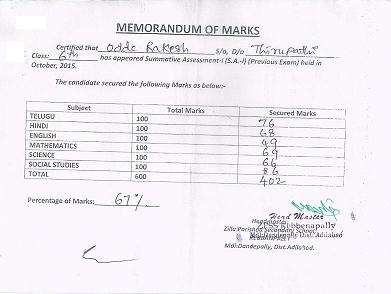 MEMORANDUM OF MARKS
Certified that Odde Rakesh S/o, D/o Thirupathi
Class: 6th has appeared Summative Assessment-I (S.A.-I) (Previous Exam) held in
October, 2015.
The candidate secured the following Marks as below:-
Subject Total Marks Secured Marks
TELUGU 100 76
HINDI 100 68
ENGLISH 100 49
MATHEMATICS 100 69
SCIENCE 100 66
SOCIAL STUDIES 100 86
TOTAL 600 402
Percentage of Marks: 67%
Head Master
Headmaster
ZPSS Rebbenapally
Zilla Parishad Secondary School
Mdl:Dandepally Dist.Adilabad
Mdl:Dandepally, Dist.Adilabad.